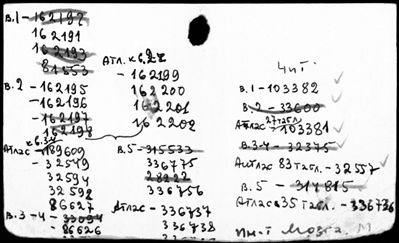 В.1 – 162192
162191
162193
81553
В.2 – 162195
– 162196
– 162197
– 162198
Атлас к 6.34
– 189609
– 32549
32594
32592
86627
В.3-4 – 33094
– 86626
Атл. к 6.2
– 162199
162200
162201
162202
В.5 – 315533
336775
28222
336756
Атлас – 336737
336738
Чит
В.1 – 103382
В.2 – 33600
Атлас 27 табл. – 103381
В.3-4 – 32375
Атлас 83 табл. – 32557
В.5 – 314815
Атлас 35 табл. – 336736
Ин-т Мозга. М